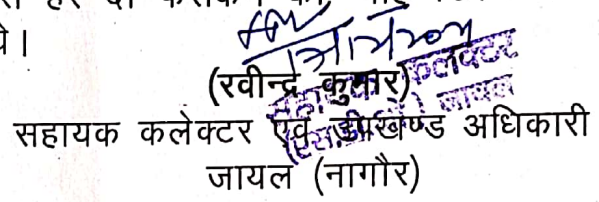 ये।
(रवीन्द्र कुमार)
सहायक कलेक्टर एवं उपखण्ड अधिकारी
जायल (नागौर)